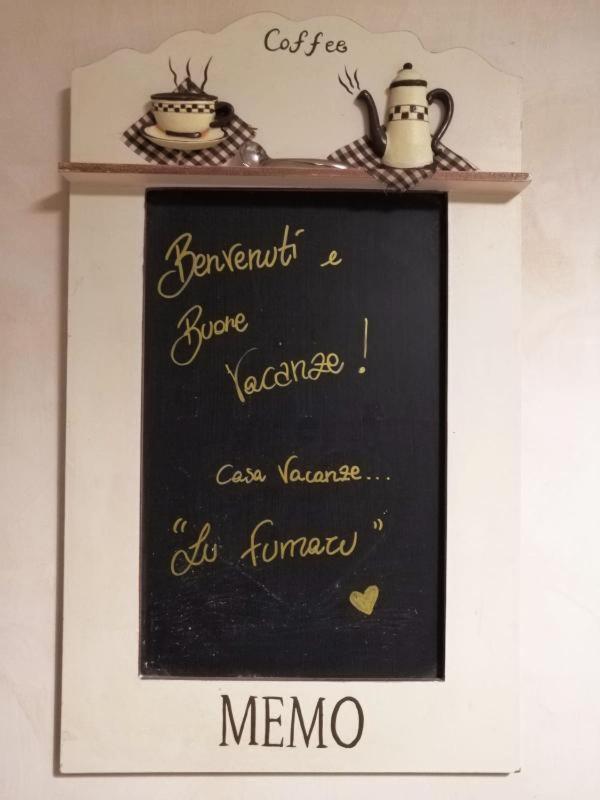 Coffee
Benvenuti e
Buone
Vacanze!
Casa Vacanze...
"Lu fumazu"
MEMO